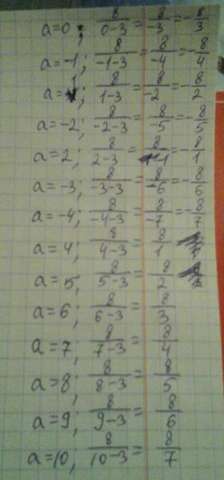 a=0; 8/(0-3)=8/-3=-8/3
a=-1; 8/(-1-3)=8/-4=-8/4
a=1; 8/(1-3)=8/-2=-8/2
a=-2; 8/(-2-3)=8/-5=-8/5
a=2; 8/(2-3)=8/-1=-8/1
a=-3; 8/(-3-3)=8/-6=-8/6
a=-4; 8/(-4-3)=8/-7=-8/7
a=4; 8/(4-3)=8/1
a=5; 8/(5-3)=8/2
a=6; 8/(6-3)=8/3
a=7; 8/(7-3)=8/4
a=8; 8/(8-3)=8/5
a=9; 8/(9-3)=8/6
a=10; 8/(10-3)=8/7